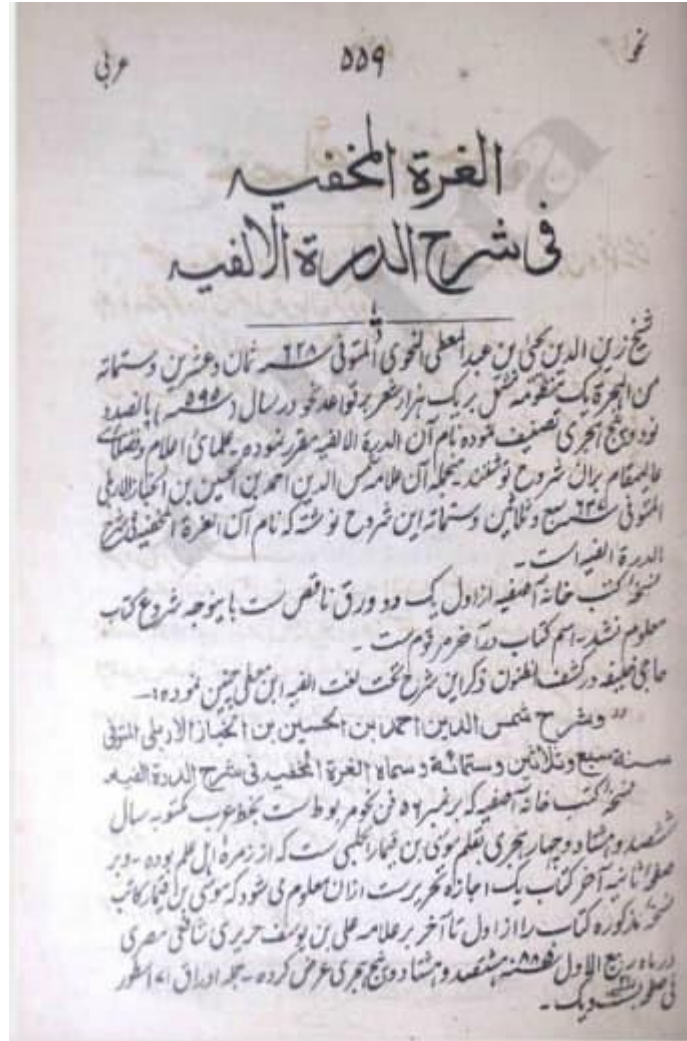 نحو ۵۵۹ عربی
الغرة المخفیه
فی شرح الدرة الالفیه
شیخ زین الدین یحیی بن عبد المعطی النحوی المتوفی ۶۲۸ سنه ثمان وعشرین وستمائة
من الهجرة یک منظومه مشتمل بر یک هزار شعر بر قواعد نحو در سال (۵۹۵ سنه) پانصد و
نود و پنج هجری تصنیف نموده نام آن الدرة الالفیه مقرر نموده ـ علمائ اعلام وفضلائے
عالیمقام بران شروح نوشتند منجمله آن علامه شمس الدین احمد بن الحسین بن الخباز الاربلی
المتوفی ۶۳۷ سنه سبع وثلاثین وستمائة این شروح نوشته که نام آن الغرة المخفیه فی شرح
الدرة الفیه است ـ
نسخۂ کتب خانۂ آصفیه از اول یک دو ورق ناقص ست باینوجه شروع کتاب
معلوم نشد ـ اسم کتاب در آخر مرقوم ست ـ
حاجی خلیفه در کشف الظنون ذکر این شرح تحت لغت الفیه ابن معطی چنین نموده ـ
" وشرح شمس الدین احمد بن الحسین بن الخباز الاربلی المتوفی
سنة سبع وثلاثین وستمائة وسماه الغرة المخفیه فی شرح الدرة الفیه
نسخۂ کتب خانۂ آصفیه که بر نمبر ۵۶ فن نحو مربوط ست بخط عرب مکتوبه سال
ششصد و هشتاد و چهار هجری بقلم موسی بن الحلبی ست که از زمرۂ اهل علم بوده ـ و بر
صفحۂ ثانیه آخر کتاب یک اجازه تحریرست ازان معلوم می شود که موسی بن کاتب
نسخۂ مذکوره کتاب را از اول تا آخر بر علامه علی بن یوسف حریری شافعی مصری
در ماه ربیع الاول سنه هشتصد و هشتاد و پنج هجری عرض کرده ـ جمله اوراق ۱۷۱ سطور
فی صفحه بست ویک ـ